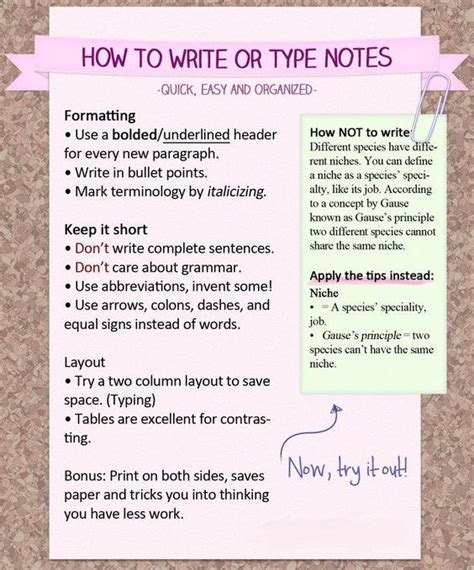 HOW TO WRITE OR TYPE NOTES
-QUICK, EASY AND ORGANIZED-
Formatting
• Use a bolded/underlined header
for every new paragraph.
• Write in bullet points.
• Mark terminology by italicizing.
Keep it short
• Don't write complete sentences.
• Don't care about grammar.
• Use abbreviations, invent some!
• Use arrows, colons, dashes, and
equal signs instead of words.
Layout
• Try a two column layout to save
space. (Typing)
• Tables are excellent for contras-
ting.
Bonus: Print on both sides, saves
paper and tricks you into thinking
you have less work.
How NOT to write:
Different species have diffe-
rent niches. You can define
a niche as a species' speci-
alty, like its job. According
to a concept by Gause
known as Gause's principle
two different species cannot
share the same niche.
Apply the tips instead:
Niche
• = A species' speciality,
job.
• Gause's principle = two
species can't have the same
niche.
Now, try it out!